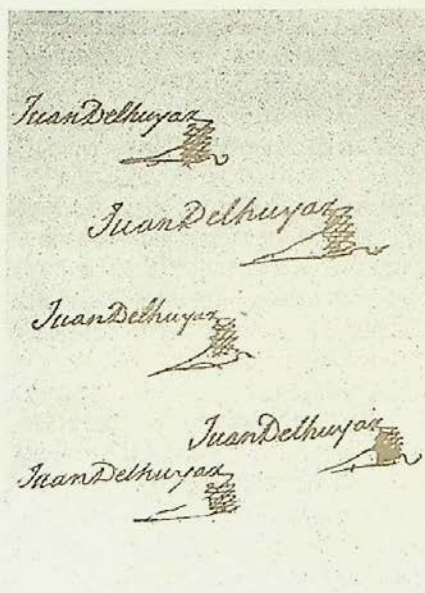 Juan Delhuyar
Juan Delhuyar
Juan Delhuyar
Juan Delhuyar
Juan Delhuyar